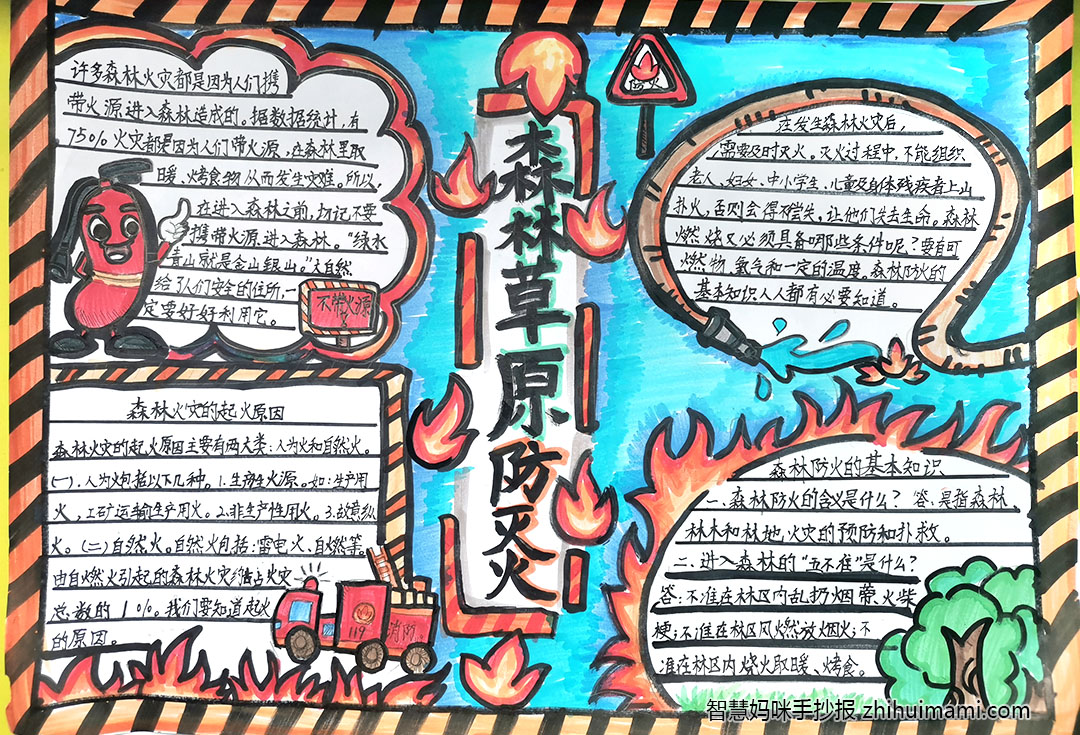 许多森林火灾都是因为人们携
带火源进入森林造成的。据数据统计，有
75%火灾都是因为人们带火源，在森林里取
暖、烤食物从而发生灾难。所以，
在进入森林之前，切记不要
携带火源进入森林。“绿水
青山就是金山银山。”大自然
给了人们安全的住所，一
定要好好利用它。
不带火源
森林草原防灭火
防火
在发生森林火灾后，
需要及时灭火。灭火过程中，不能组织
老人、妇女、中小学生、儿童及身体残疾者上山
扑火，否则会得不偿失，让他们失去生命。森林
燃烧又必须具备哪些条件呢？要有可
燃物、氧气和一定的温度。森林防火的
基本知识人人都有必要知道。
森林火灾的起火原因
森林火灾的起火原因主要有两大类：人为火和自然火。
(一)．人为火包括以下几种。1.生产生火源。如：生产用
火，工矿运输生产用火。2.非生产性用火。3.故意纵
火。(二)自然火。自然火包括：雷电火、自燃等。
由自燃火引起的森林火灾约占火灾
总数的1%。我们要知道起火
的原因。
119
消防
森林防火的基本知识
一、森林防火的含义是什么？答：是指森林、
林木和林地，火灾的预防和扑救。
二、进入森林的“五不准”是什么？
答：不准在林区内乱扔烟蒂、火柴
梗；不准在林区风燃放烟火；不
准在林区内烧火取暖、烤食。
智慧妈咪手抄报 zhihuimami.com